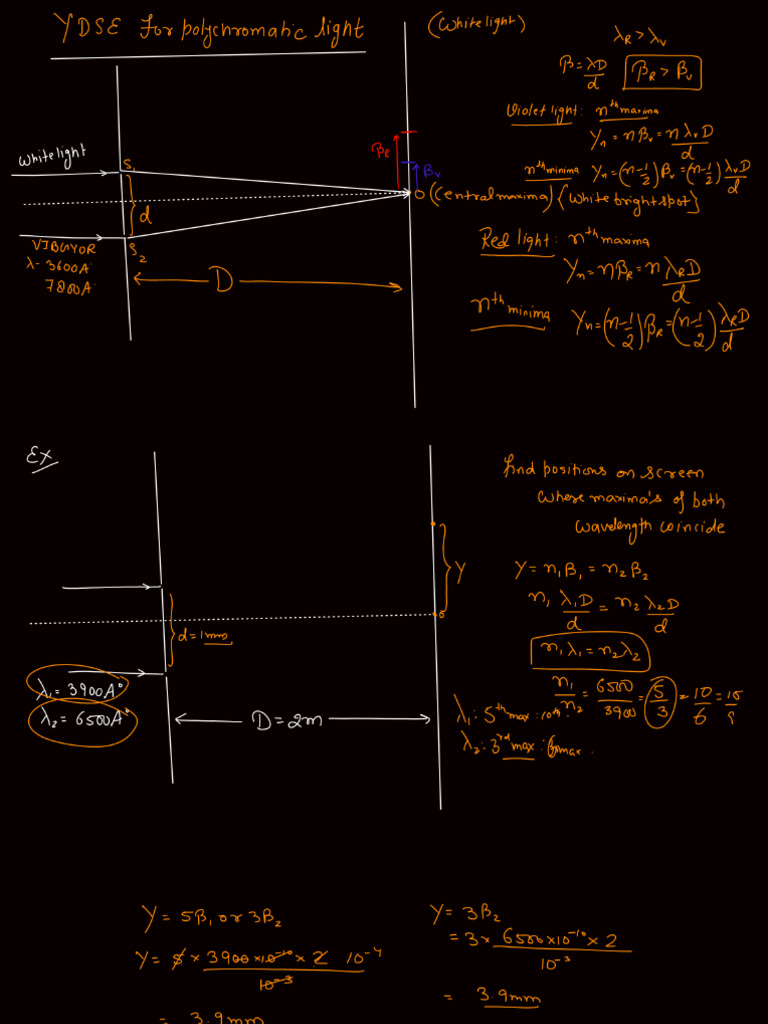 YDSE for polychromatic light
(White light)
λR > λV
β = λD/d
βR > βV
Violet light: nth maxima
Yn = nβV = nλVD/d
nth minima Yn = (n-1/2)βV = (n-1/2) λVD/d
White light
S1
d
S2
βR
βV
O (Central maxima) {White bright spot}
VIBGYOR
λ - 3600A°
7800A°
D
Red light: nth maxima
Yn = nβR = n λRD/d
nth minima Yn = (n-1/2)βR = (n-1/2) λRD/d
Ex
find positions on screen
where maxima's of both
wavelength coincide
Y
Y = n1β1 = n2β2
n1 λ1D/d = n2 λ2D/d
n1λ1 = n2λ2
n1/n2 = 6500/3900 = 5/3 = 10/6 = 15/9
d = 1mm
o
λ1 = 3900A°
λ2 = 6500A°
D = 2m
λ1: 5th max: 10th
λ2: 3rd max: 6 max.
Y = 5β1 or 3β2
Y = 5 × 3900 × 10^-10 × 2 / 10^-3 10^-4
= 3.9mm
Y = 3β2
= 3 × 6500 × 10^-10 × 2 / 10^-3
= 3.9mm